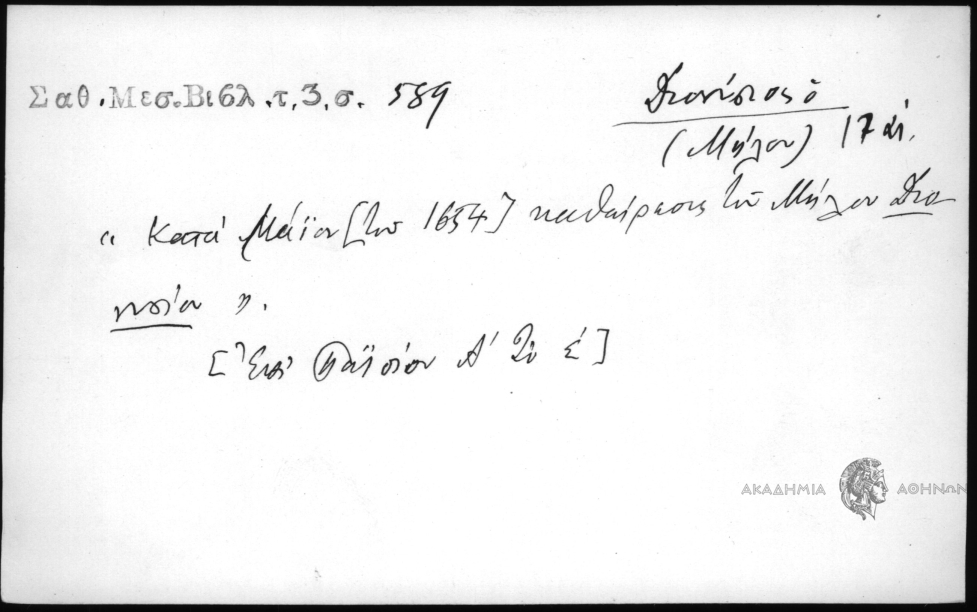 Σαθ. Μεσ. Βιβλ. τ. 3, σ. 589
Διονύσιος ὁ
(Μήλου) 17 αἰ.
« Κατά Μάϊον [τοῦ 1654] καθαίρεσις τοῦ Μήλου Διο
νυσίου ».
[Ἐπί Παϊσίου Α΄ ]
ΑΚΑΔΗΜΙΑ ΑΘΗΝΩΝ